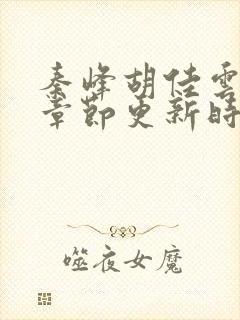 秦峰胡佳雲
章節更新時
噬夜女魔